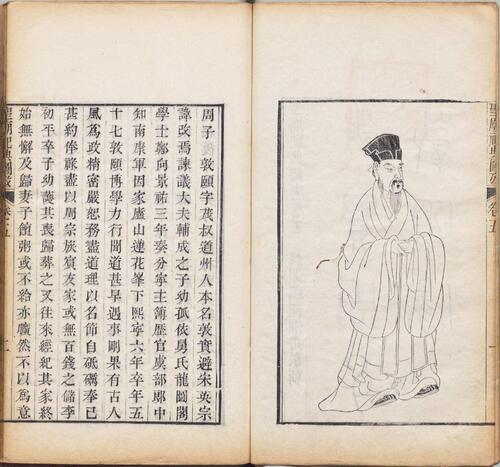 聖廟祀典圖攷 卷五
周子 敦頤字茂叔道州人本名敦實避宋英宗
諱改焉諫議大夫輔成之子幼孤依舅氏龍圖閣
學士鄭向景祐三年奏分寧主簿歷官虞部郎中
知南康軍因家廬山蓮花峯下熙寧六年卒年五
十七敦頤博學力行聞道甚早遇事剛果有古人
風爲政精密嚴恕務盡道理以名節自砥礪奉己
甚約俸祿盡以周宗族賓友家或無百錢之儲李
初平卒子幼護其喪歸葬之又往來經紀其家終
始無懈及歸妻子饘粥或不給亦曠然不以爲意
聖廟祀典圖攷 卷五